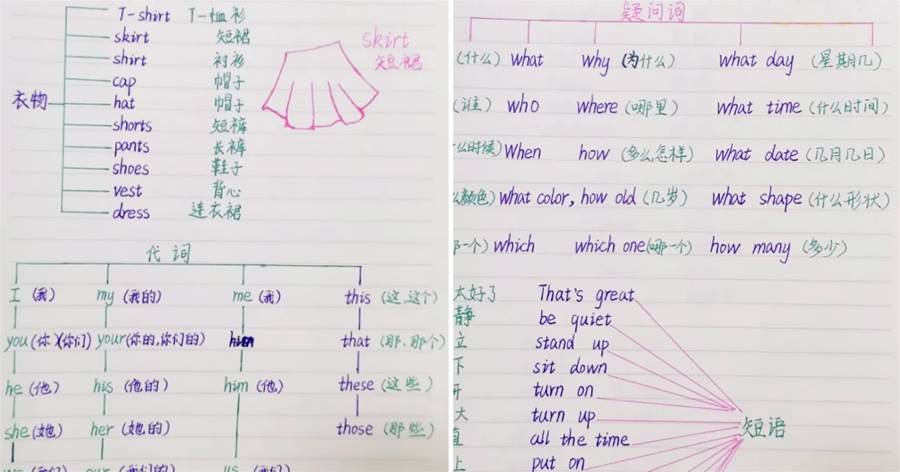 T-shirt T-恤衫
skirt 短裙
shirt 衬衫
cap 帽子
衣物
hat 帽子
shorts 短裤
pants 长裤
shoes 鞋子
vest 背心
dress 连衣裙
skirt
短裙
代词
I (我) my (我的) me (我) this (这,这个)
you (你)(你们) your (你的,你们的) that (那、那个)
he (他) his (他的) him (他) these (这些)
she (她) her (她的) those (那些)
we (我们) our (我们的) us (我们)
疑问词
(什么) what why (为什么) what day (星期几)
(谁) who where (哪里) what time (什么时间)
么时候) When how (多么怎样) what date (几月几日)
么颜色) what color, how old (几岁) what shape (什么形状)
那一个) which which one (哪一个) how many (多少)
太好了 That's great
静 be quiet
立 stand up
下 sit down
开 turn on
大 turn up
直 all the time
上 put on
短语